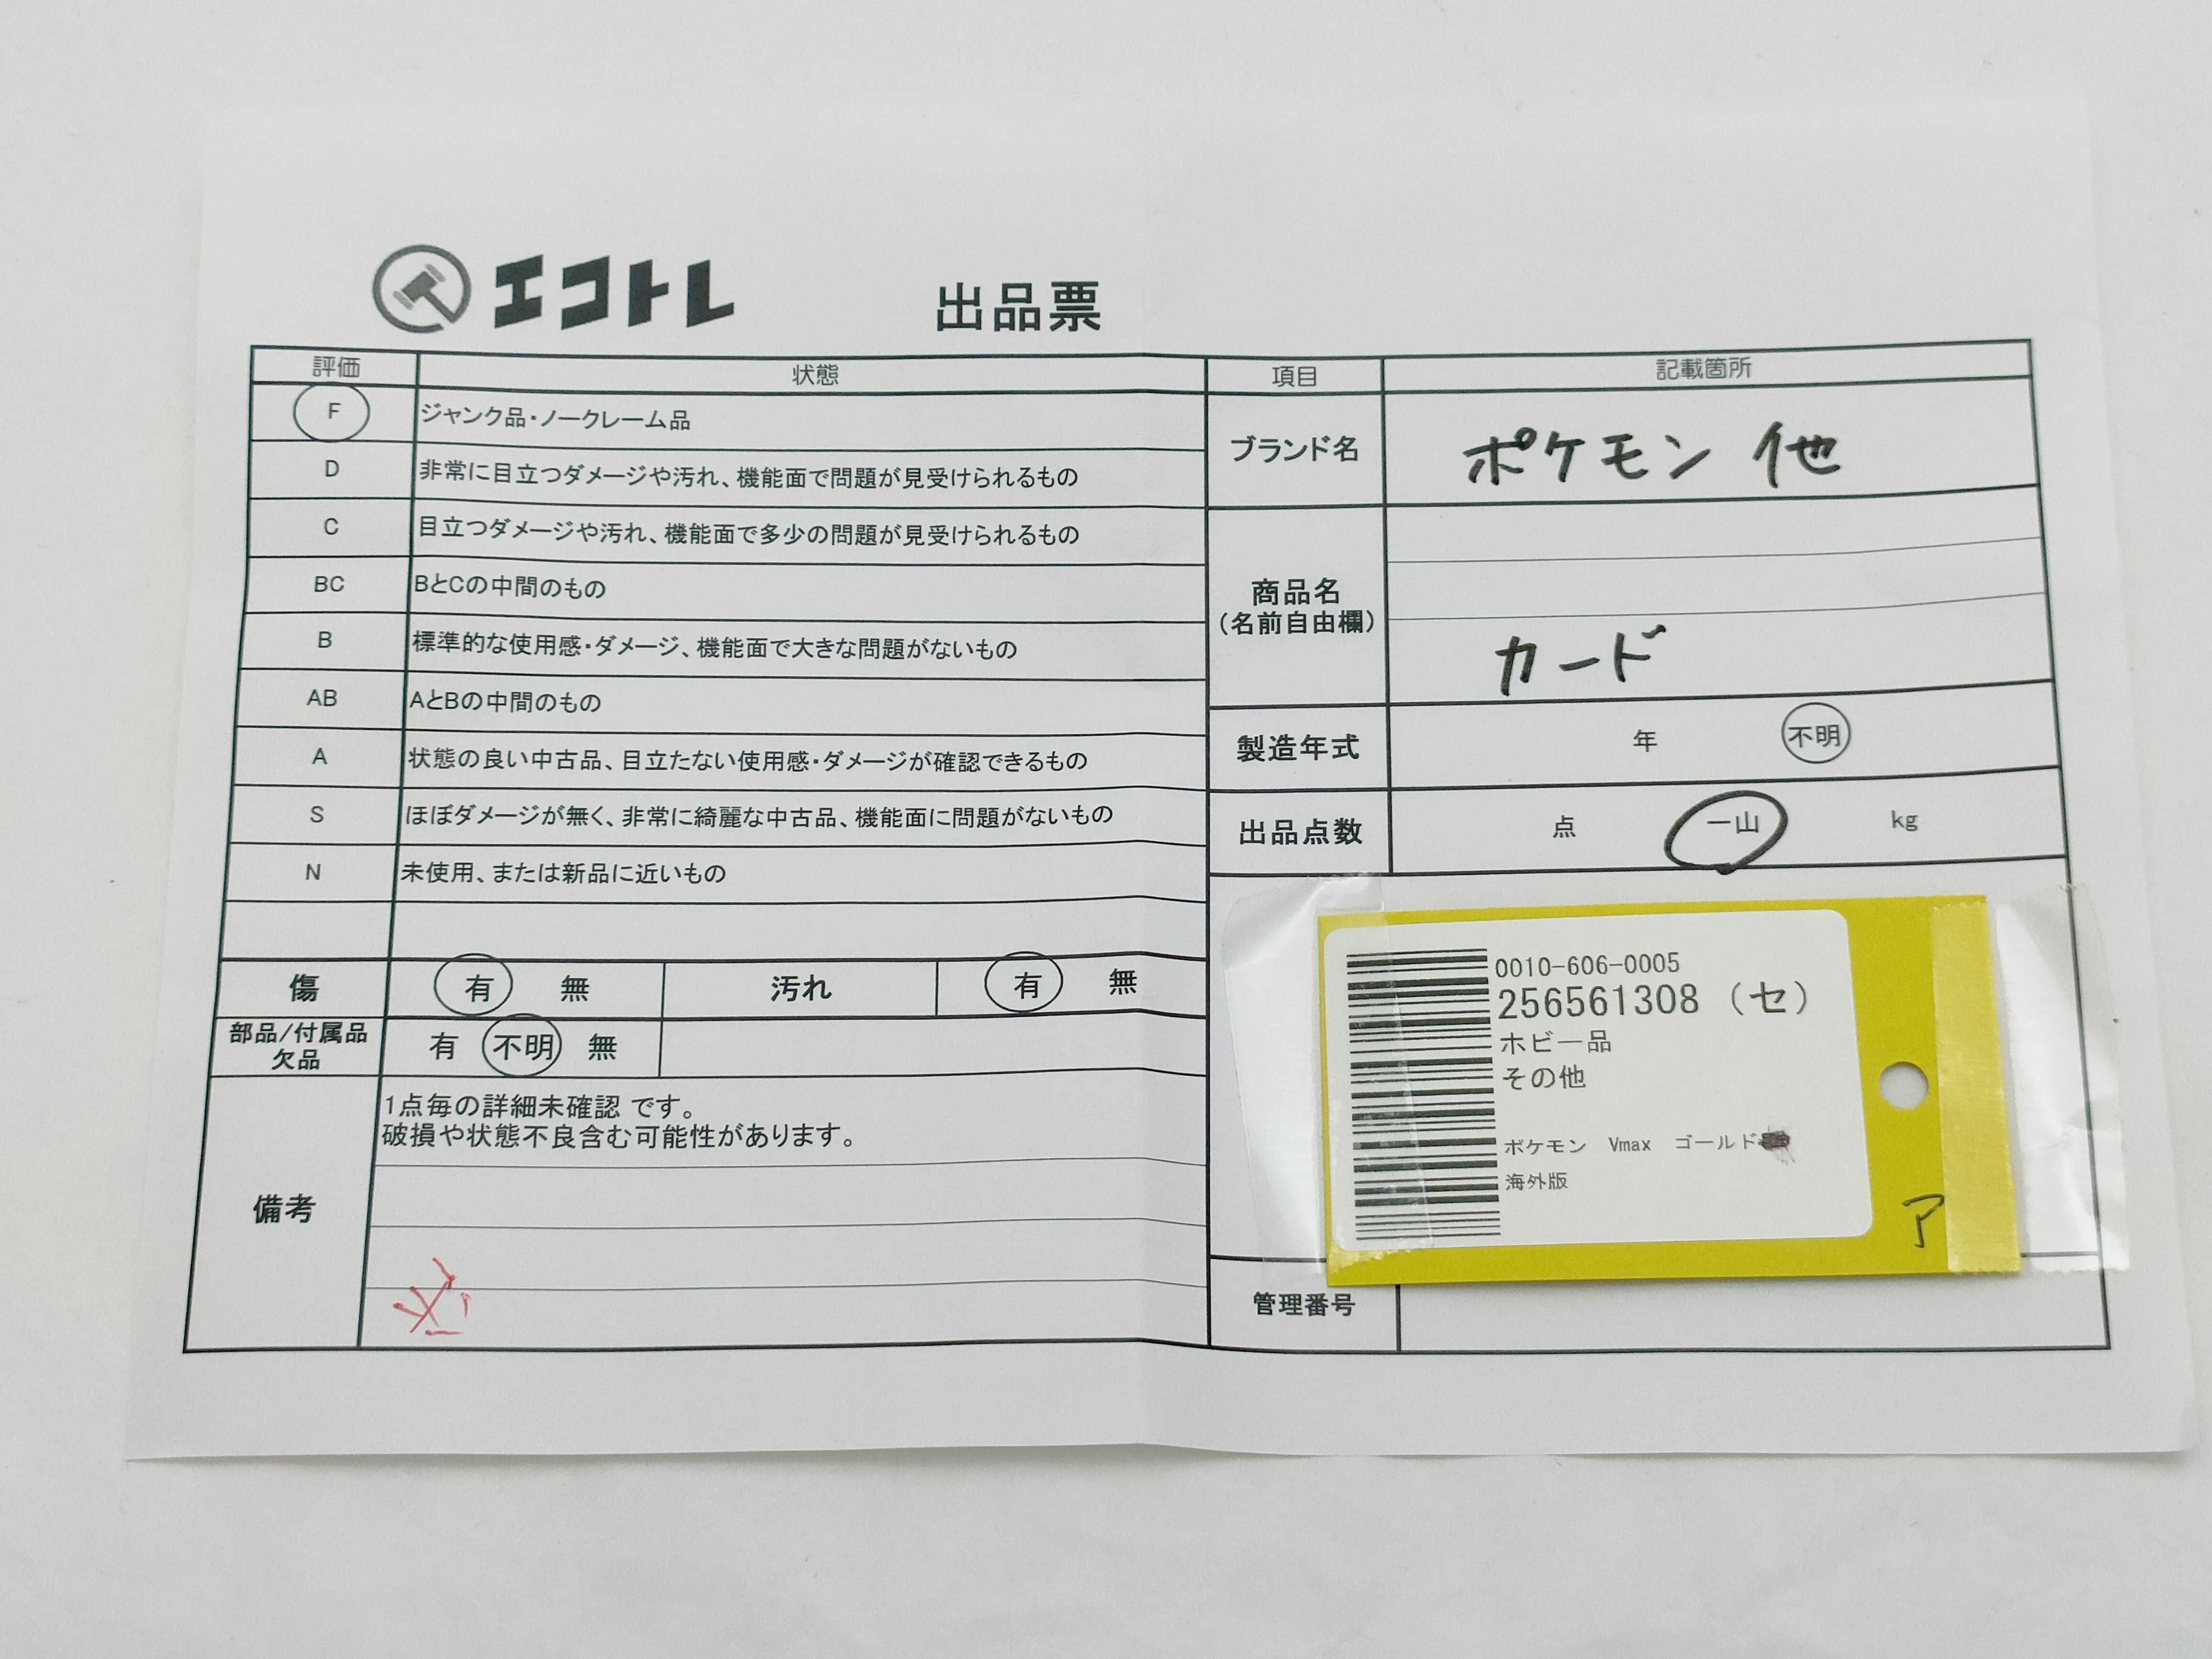 エコトレ
出品票
評価 状態
F ジャンク品・ノークレーム品
D 非常に目立つダメージや汚れ、機能面で問題が見受けられるもの
C 目立つダメージや汚れ、機能面で多少の問題が見受けられるもの
BC BとCの中間のもの
B 標準的な使用感・ダメージ、機能面で大きな問題がないもの
AB AとBの中間のもの
A 状態の良い中古品、目立たない使用感・ダメージが確認できるもの
S ほぼダメージが無く、非常に綺麗な中古品、機能面に問題がないもの
N 未使用、または新品に近いもの
傷 有 無 汚れ 有 無
部品/付属品
欠品
有 不明 無
備考
1点毎の詳細未確認 です。
破損や状態不良含む可能性があります。
項目 記載箇所
ブランド名 ポケモン 他
商品名
(名前自由欄)
カード
製造年式 年 不明
出品点数 点 一山 kg
0010-606-0005
256561308 (セ)
ホビー品
その他
ポケモン Vmax ゴールド
海外版
ア
管理番号